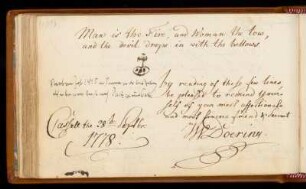 Man is the Fire, and Woman the tow,
and the devil creeps in with the bellows
by reading of these few lines,
be pleased to remind Your-
self of your most affectionate
and most sincere friend & Servant
Cassell the 28th Septbr
1778.
W. Doering